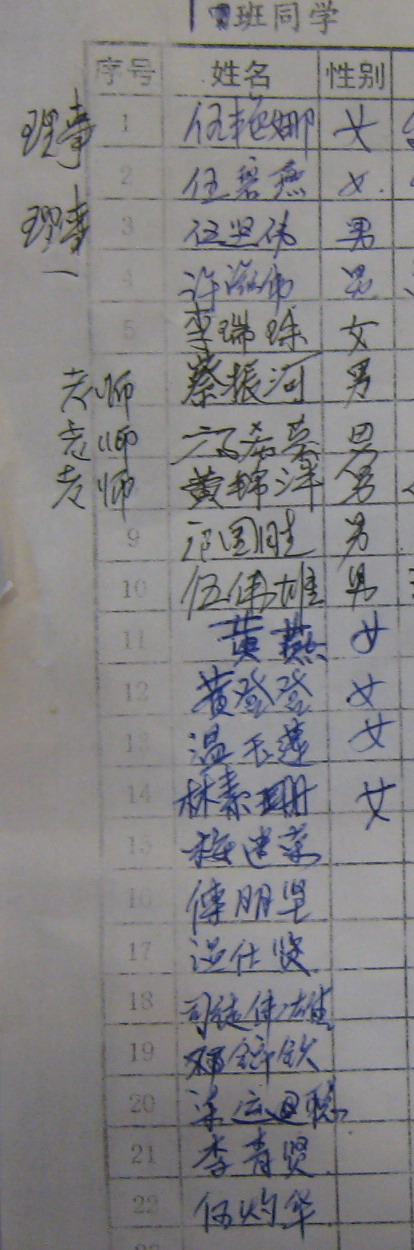 班同学
序号 姓名 性别
理事 1 伍艳娜 女
2 伍碧燕 女
理事 3 伍坚伟 男
一 4 许 伟 男
5 李瑞珠 女
老师 蔡振河 男
老师 男
老师 黄锦泽 男
9 范国胜 男
10 伍伟雄 男
11 黄燕 女
12 黄登登 女
13 温玉莲 女
14 林素珊 女
15 梅建荣
16 傅明坚
17 温仕贤
18 司徒伟雄
19 邓 钦
20 梁 聪
21 李青贤
22 伍灼华